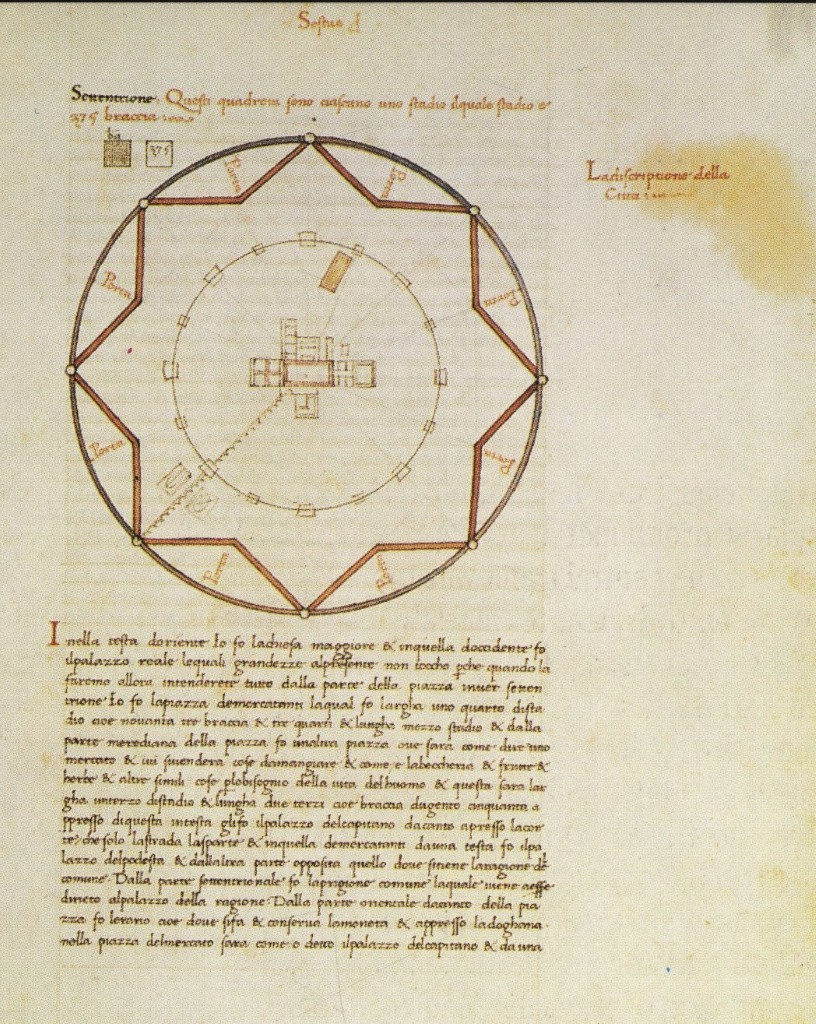 Sextus
Settentrione, Questi quadretti sono ciascuno uno stadio ilquale stadio e
375 braccia
375
La discriptione della
Citta
Porta
Porta
Porta
Porta
Porta
Porta
Porta
Porta
Inella testa doriente Io fo lachiesa maggiore & inquella doccidente fo
ilpalazzo reale lequali grandezze alpresente non toccho perche quando la
faremo allora intenderete tutto dalla parte della piazza inver setten
trione Io fo lapiazza demercatanti laqual fo largha uno quarto dista
dio cioe novanta tre braccia & tre quarti & lungha mezzo stadio & dalla
parte meridiana della piazza fo unaltra piazza ove sara come dire uno
mercato & ivi sivendera cose damangiare & come e labeccheria & frutte &
herbe & altre simili cose perlobisogno della vita delhuomo & questa sara lar
gha unterzo distadio & lungha due terzi cioe braccia dugento cinquanta a
ppresso diquesta intesta glifo ilpalazzo delcapitano dacanto apresso lacor
te, che solo lastrada lasparte & inquella demercatanti dauna testa fo ilpa
lazzo delpodesta & dallaltra parte opposita quello dove sitiene laragione del
comune. Dalla parte settentrionale fo laprigione comune laquale viene aesse
dirieto alpalazzo della ragione. Dalla parte orientale dacanto della pia
zza fo lerario cioe dove sifa & conserva lamoneta & appresso ladoghana.
nella piazza delmercato sara come o detto ilpalazzo delcapitano & da una